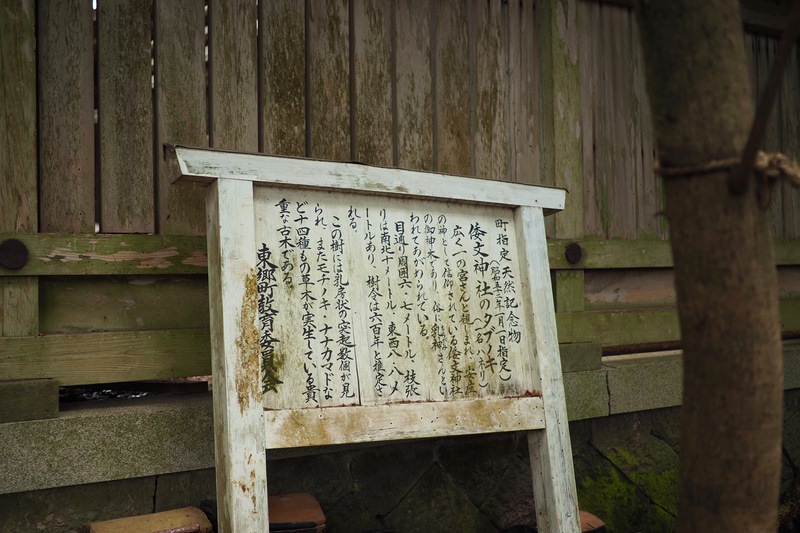 町指定 天然記念物
倭文神社のタブノキ
広く一の宮さんと親しまれ、安産
の神として信仰されている倭文神社
の御神木であり、俗に乳神さんとい
われてあがめられている。
目通り周囲六・七メートル、枝張
りは南北十メートル、東西八・八メ
ートルあり、樹令は六百年と推定さ
れる。
この樹には乳房状の突起数個が見
られ、またモチノキ・ナナカマドな
ど十四種もの草木が寄生している貴
重な古木である。
東郷町教育委員会